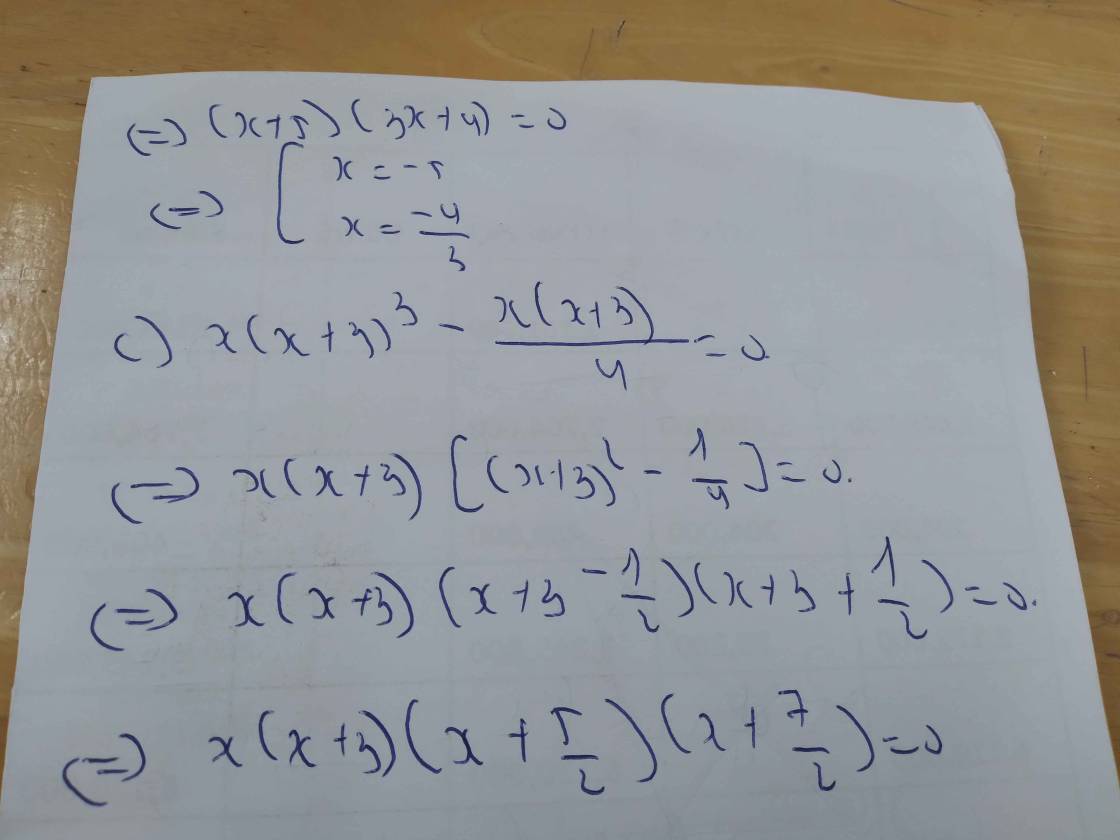 (=) (x+5)(3x+4) = 0
(=) [ x = -5
x = -4/3
c) x(x+3)^3 - x(x+3)/4 = 0.
(=) x(x+3) [(x+3)^2 - 1/4] = 0.
(=) x(x+3) (x+3 - 1/2)(x+3 + 1/2) = 0.
(=) x(x+3)(x + 5/2)(x + 7/2) = 0